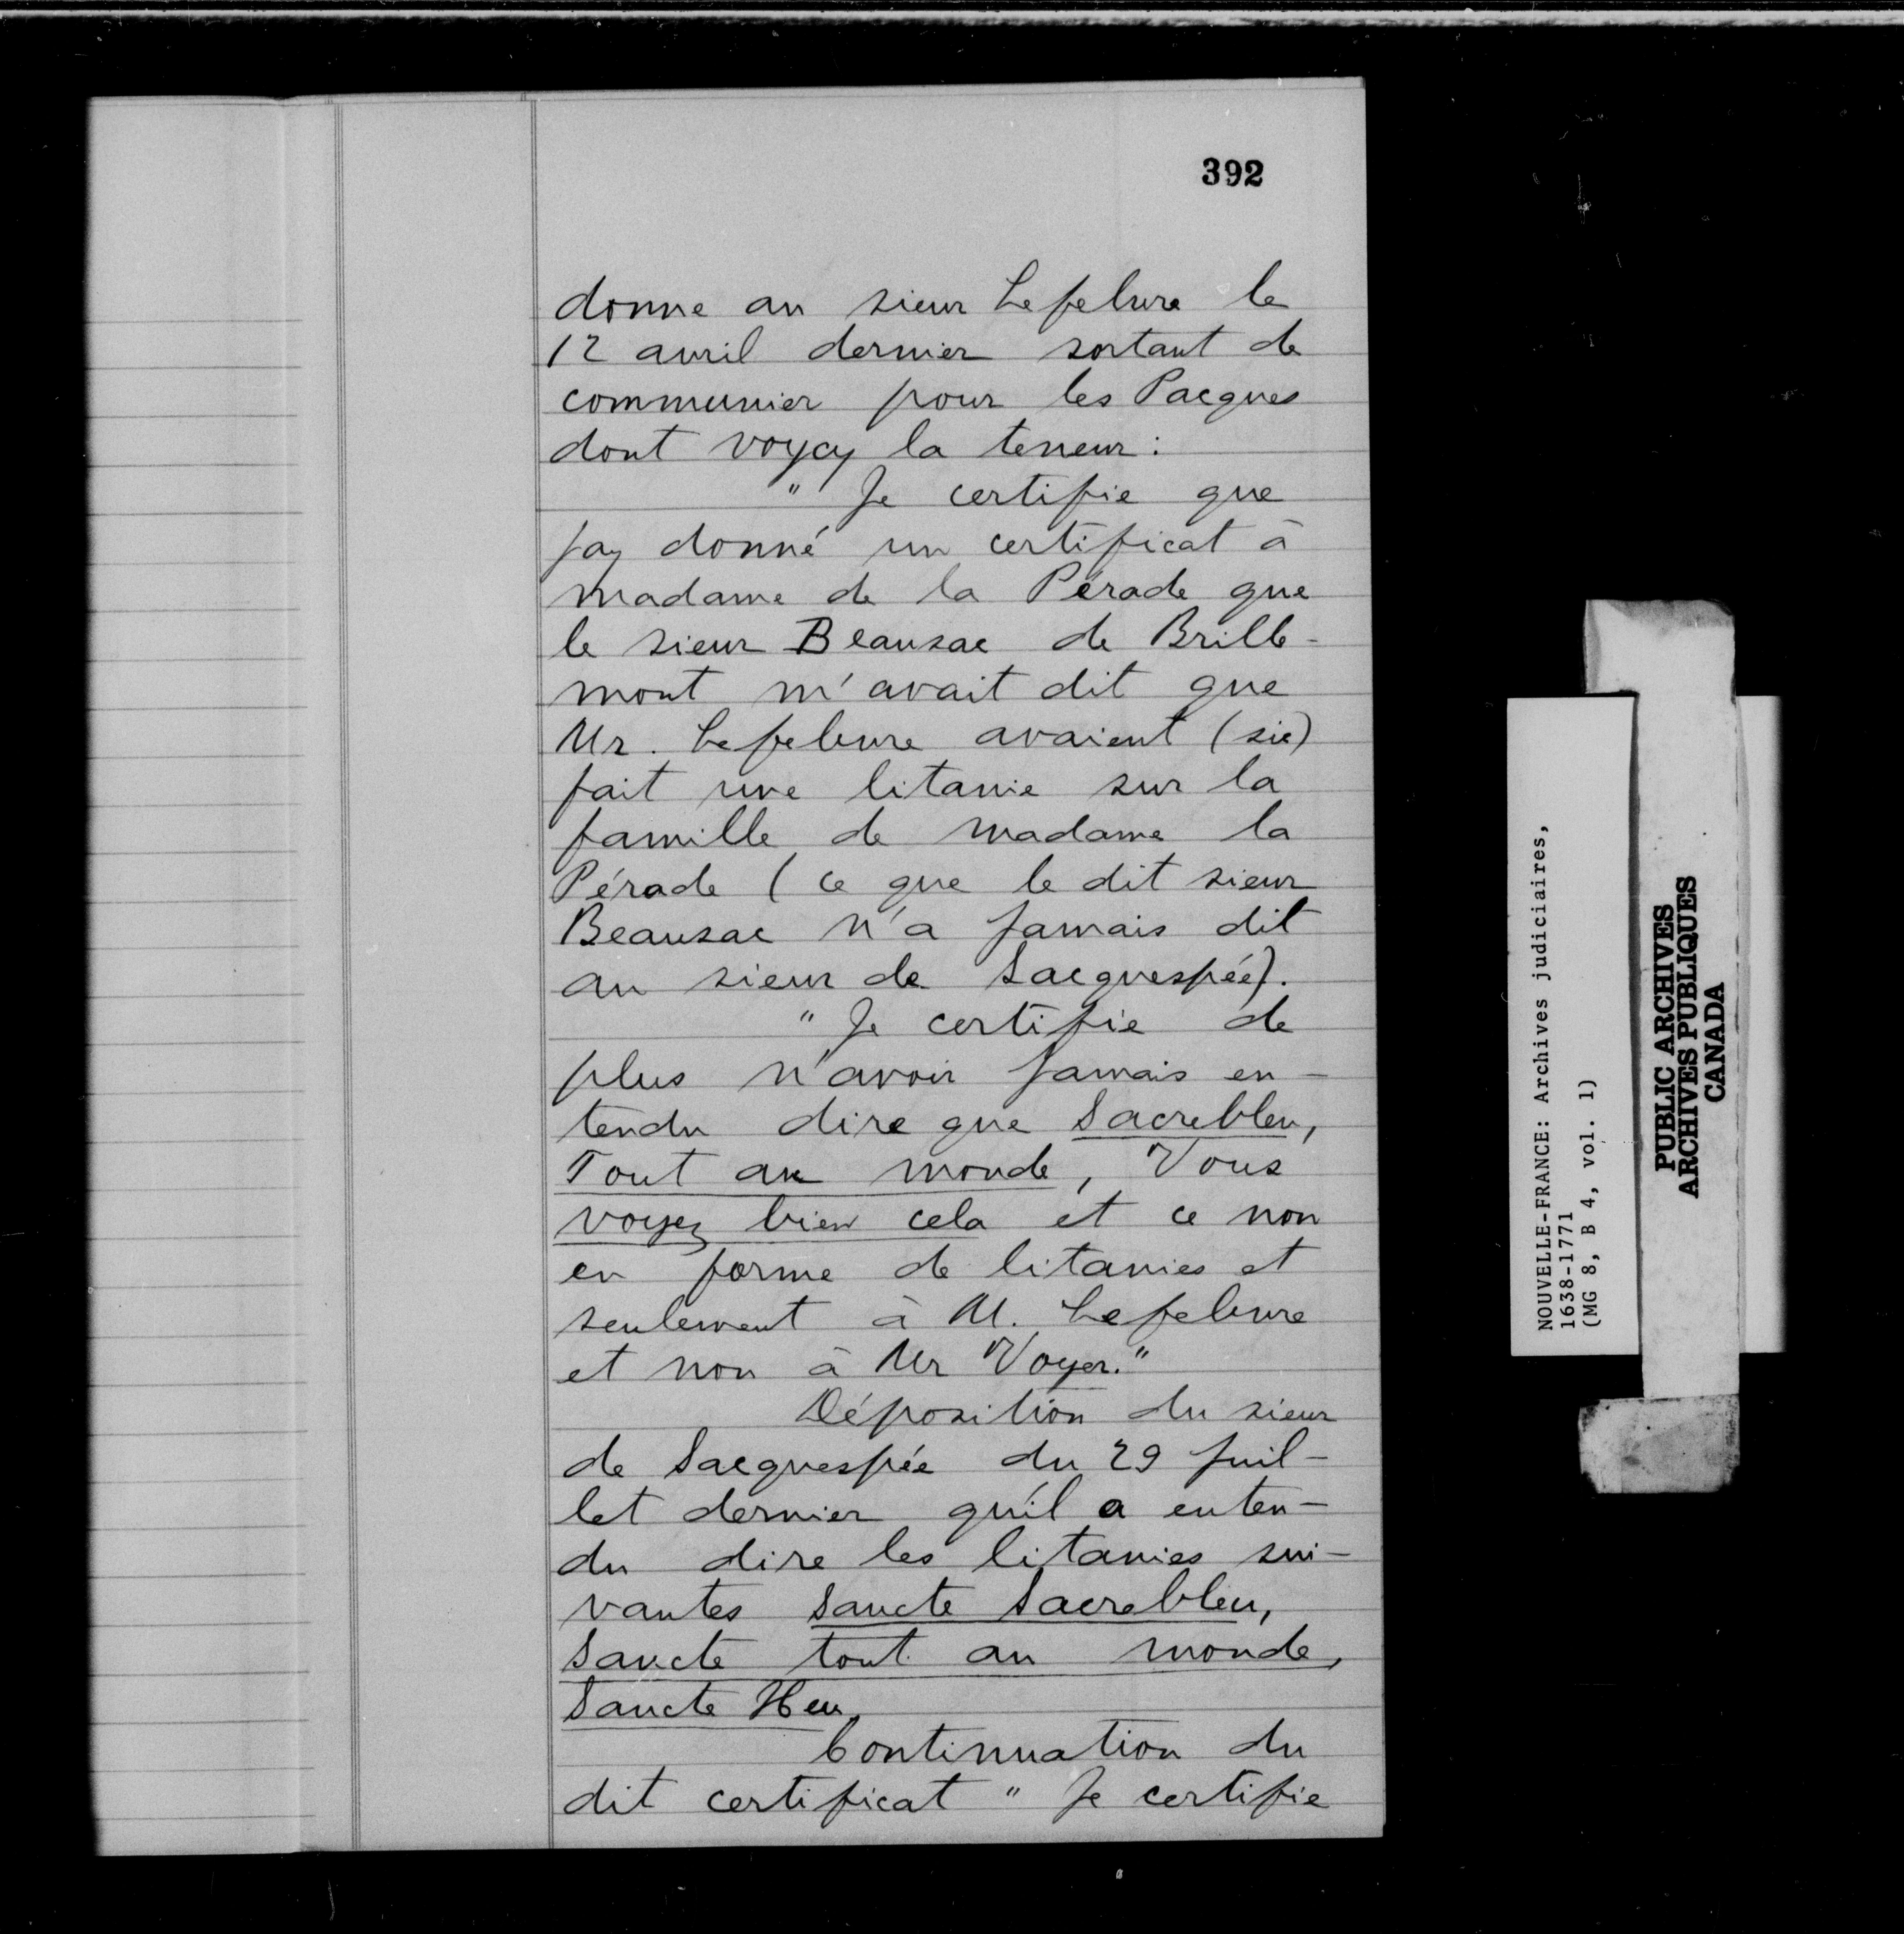 392
donne au sieur Lefebvre le
12 avril dernier sortant de
communier pour les Pacques
dont voycy la teneur :
" Je certifie que
jay donné un certificat à
madame de la Pérade que
le sieur Beausac de Brille-
mont m'avait dit que
Mr. Lefebvre avaient (sic)
fait une litanie sur la
famille de madame la
Pérade ( ce que le dit sieur
Beausac n'a jamais dit
au sieur de Sacquespée).
" Je certifie de
plus n'avoir jamais en-
tendu dire que Sacrebleu,
Tout au monde, Vous
voyez bien cela et ce non
en forme de litanies et
seulement à M. Lefebvre
et non à Mr Voyer."
Déposition du sieur
de Sacquespée du 29 juil-
let dernier qu'il a enten-
du dire les litanies sui-
vantes Sancte Sacrebleu,
Sancte tout au monde,
Sancte Heu.
Continuation du
dit certificat " Je certifie
NOUVELLE-FRANCE: Archives judiciaires,
1638-1771
(MG 8, B 4, vol. 1)
PUBLIC ARCHIVES
ARCHIVES PUBLIQUES
CANADA